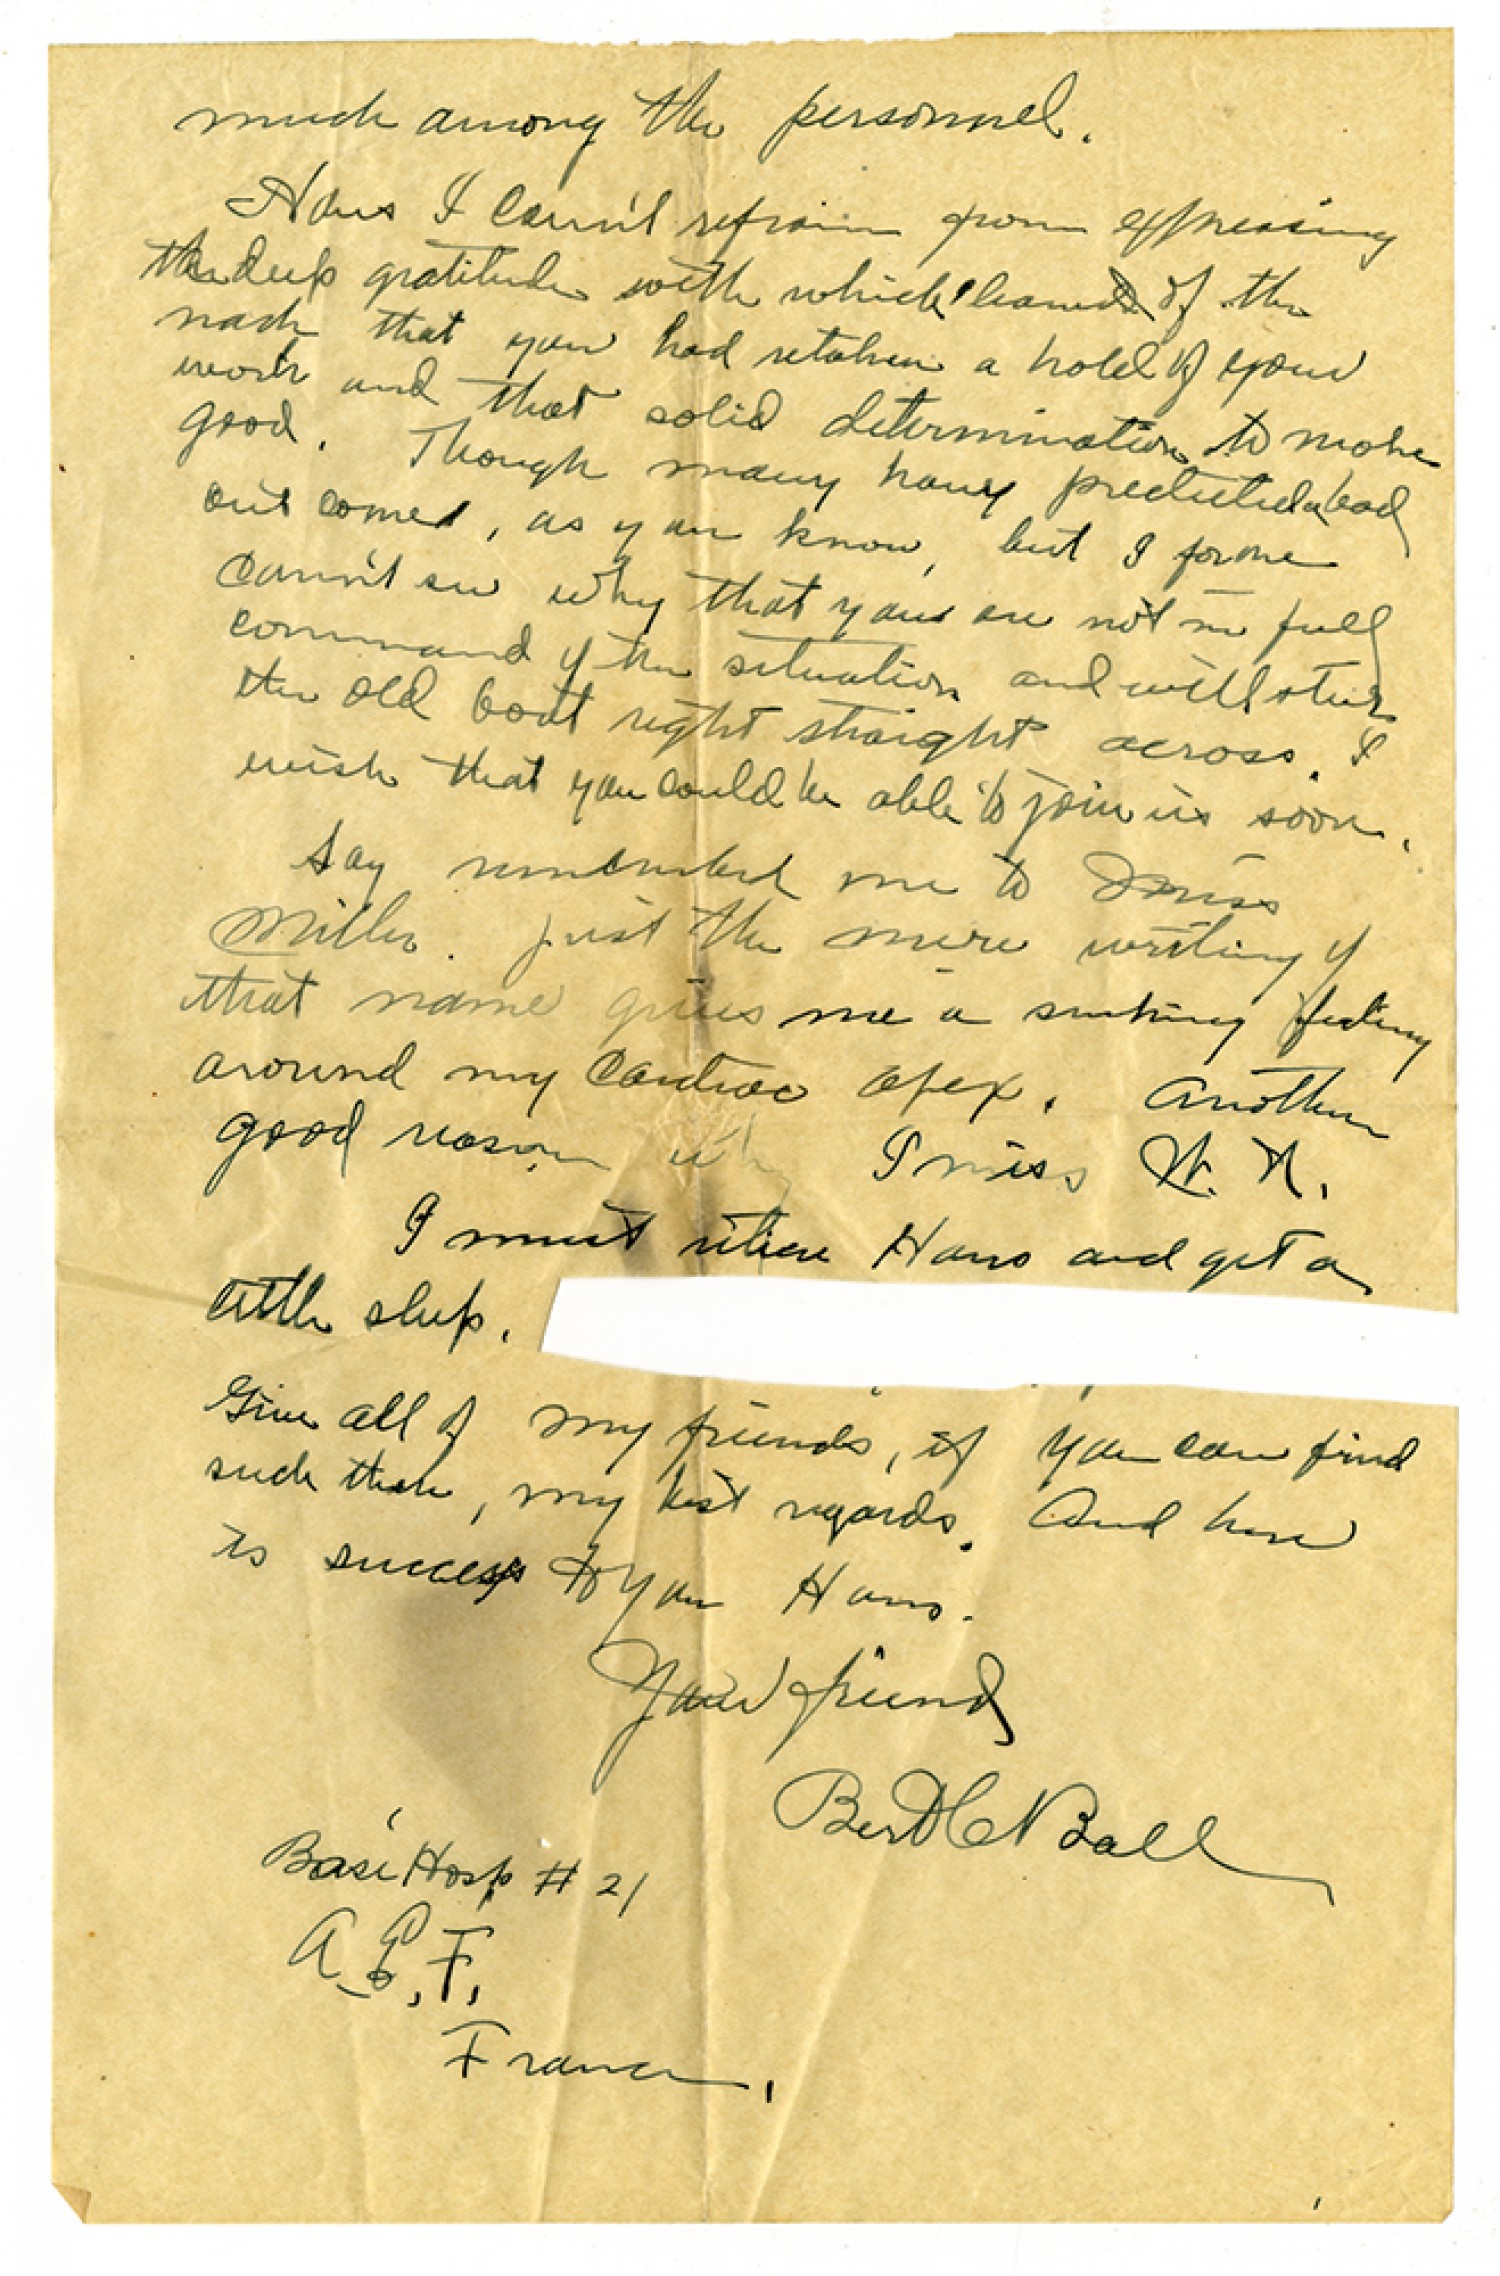 much among the personnel.
Hans I cann't refrain from expressing
the deep gratitude with which I learned of the
that you had retaken a hold of your
work and that solid determination to make
good. Though many have predicted a bad
out come, as you know, but I for one
cann't see why that you are not in full
command of the situation and will steer
the old boat right straight across. I
wish that you could be able to join us soon.
Say remember me to Miss
Miller. Just the mere writing of
that name gives me a sinking feeling
around my cardiac apex. Another
good reason why I miss W. N.
I must retire Hans and get a
little sleep.
Give all of my friends, if you can find
such there, my best regards. And here
is success to you Hans.
Your friend
Bert Ball
Base Hosp # 21
A.E.F.
France.